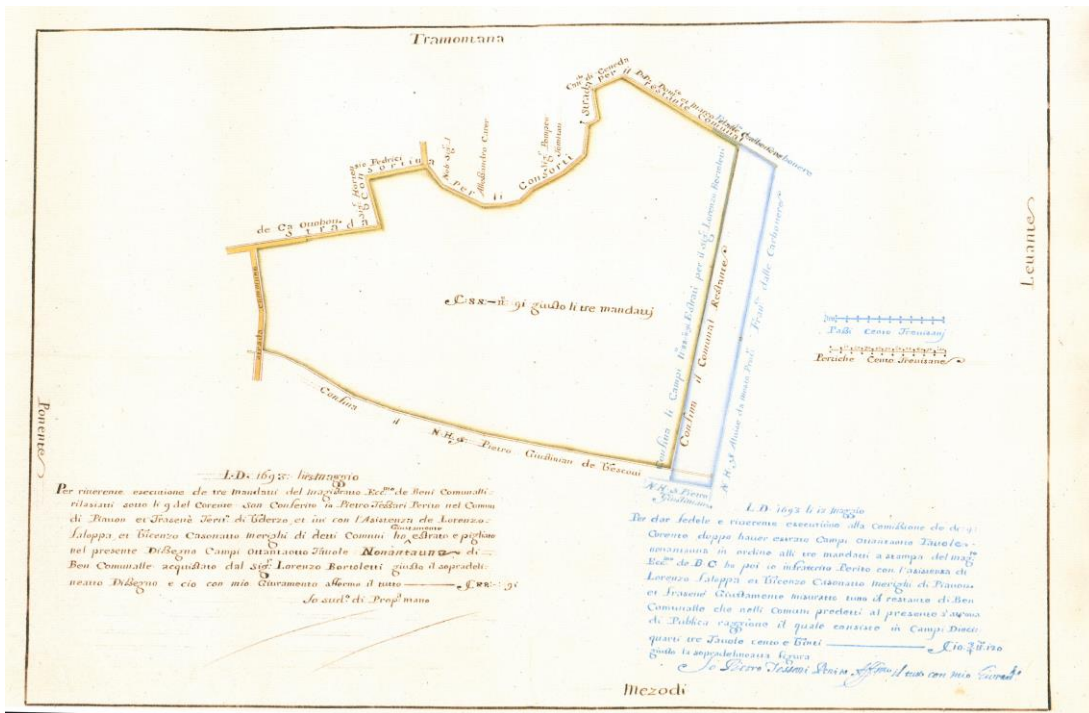 Tramontana
Ponente
Leuante
Mezodi
de Ca Ottobon.
Strada
Consortiua
Strada Commune
Nob. Sig.
Allessandro
per li
Consorti
Strada per il restante Comunal
C. 88:– tt. 91 giusto li tre mandatj
Confina il N.H. Pietro Giustinian de Vesconi
Confin li Campi Estrati per il sig. Lorenzo Bortoletti
Confini il Comunal Restante
N.H. Aluise da mosto Fran. dalle Carbonere
N.H. Pietro
Giustinian
Passi Cento Treuisanj
Pertiche Cento Treuisane
Per riuerente esecutione de tre mandati del magistratto Ecc.mo de Beni Comunalli
rilasiatti sotto li 9 del Corente son Conferito io Pietro Tessari Perito nel Comun
di Pianon et Frasenè Terit.o di Oderzo, et iui con l'Asistenza de Lorenzo
Faloppa et Vicenzo Casonatto merighi di detti Comuni ho Giustamente estrato e pigliato
nel presente Dissegno Campi Ottantaotto Tauole Nonantauna di
Ben Comunalle acquistato dal Sig. Lorenzo Bortoletti giusto il sopradeli-
neatto Dissegno e ciò con mio Giuramento affermo il tutto C. 88:– 91
Io sud.o di Prop.a mano
Per dar fedele e riuerente esecutione alla Comissione de di 9
Corente doppo hauer estrato Campi Ottantaotto Tauole
nonantauna in ordine alli tre mandatti a stampa del mag.
Ecc.mo de B C ho poi io infrascrito Perito con l'asistenza di
Lorenzo Faloppa et Vicenzo Casonatto merighi di Pianon
et Frasenè Giustamente misuratto tutto il restante di Ben
Comunalle che nelli Comuni predetti al presente s'atroua
di Publica raggione il quale consiste in Campi Dieci
quarti tre Tauole cento e Vinti
giusto la sopradelineatta figura
Io Pietro Tessari Perito Aff.mo il tutto con mio Giuram.to